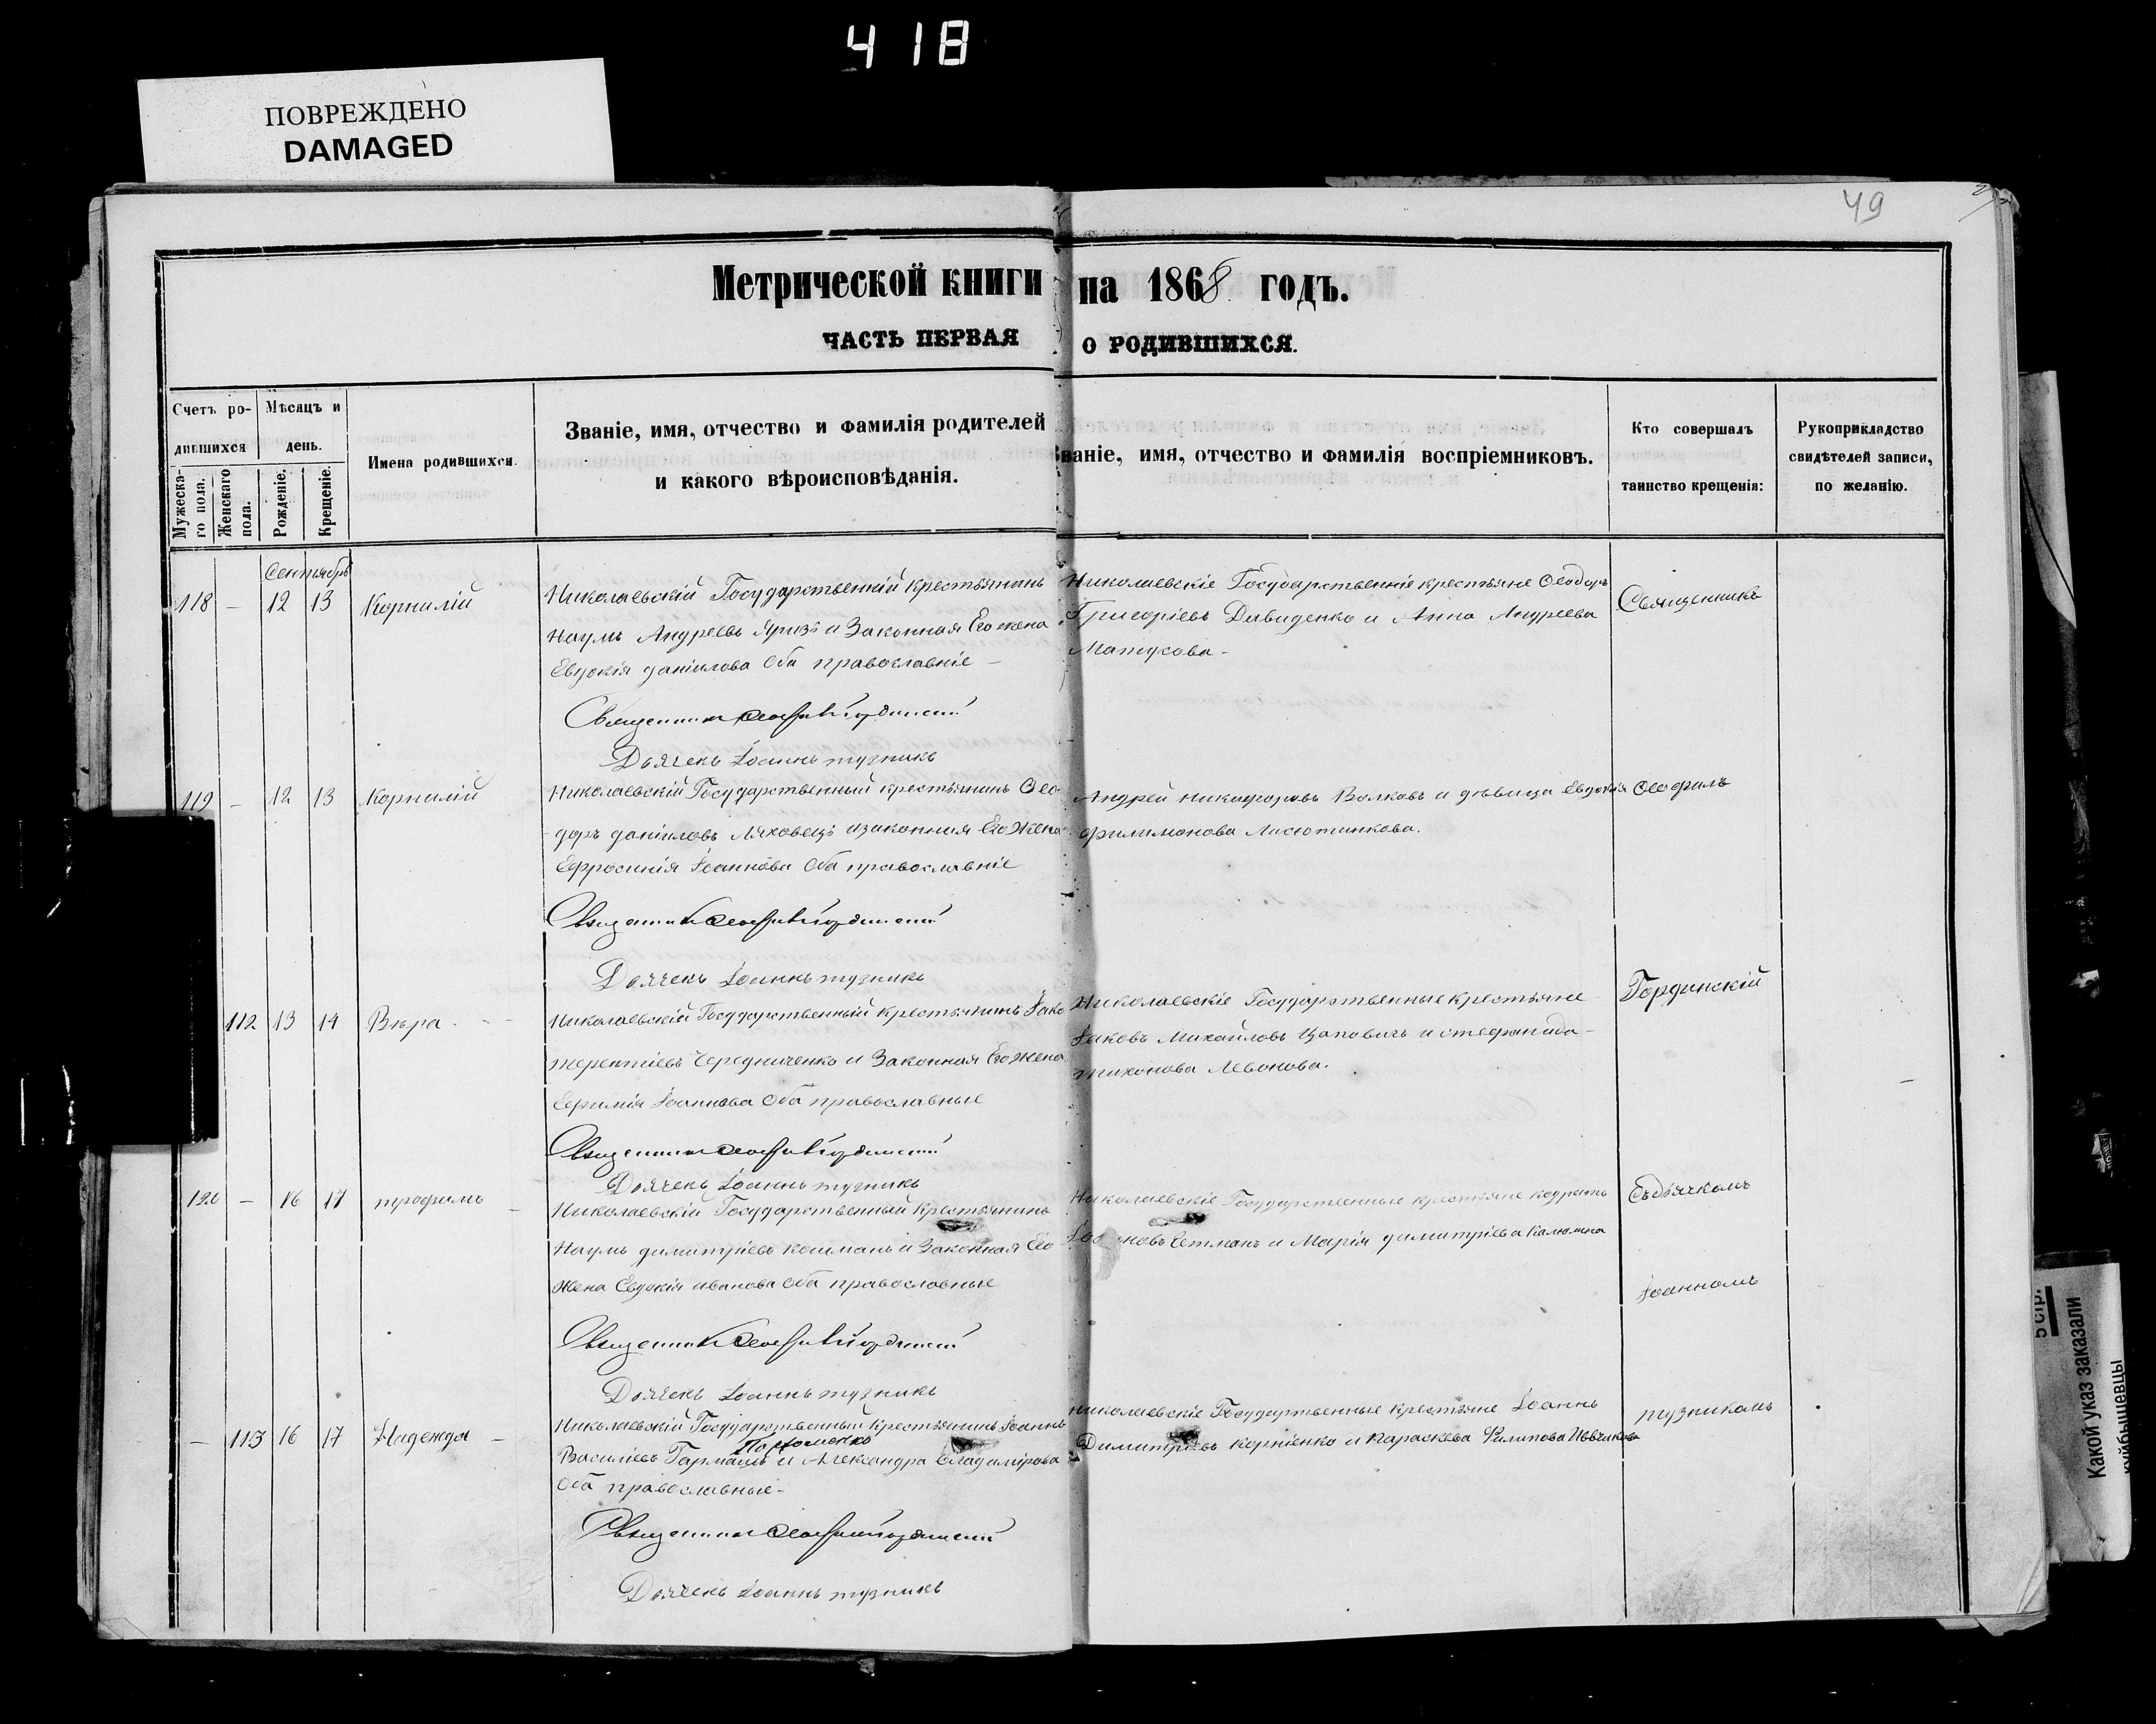 418
ПОВРЕЖДЕНО
DAMAGED
49
Метрической книги на 1868 годъ.
ЧАСТЬ ПЕРВАЯ О РОДИВШИХСЯ.
Счетъ ро-
дившихся
Мужеска-
го пола.
Женскаго
пола.
Мѣсяцъ и
день.
Рожденіе.
Крещеніе.
Имена родившихся.
Званіе, имя, отчество и фамилія родителей
и какого вѣроисповѣданія.
Званіе, имя, отчество и фамилія воспріемниковъ.
Кто совершалъ
таинство крещенія:
Рукоприкладство
свидѣтелей записи,
по желанію.
Сентябрь
118 – 12 13 Корнилій
Николаевскій Государственній крестьянинъ
Наумъ Андреевъ и Законная Его жена
Евдокія даніилова Оба православніе –
Священникъ
Дьячекъ Іоаннъ тузникъ
Николаевскіе Государственніе крестьяне Ѳеодоръ
Григоріевъ Давиденко и Анна Андреева
Матусова –
Священникъ
119 – 12 13 Корнилій
Николаевскій Государственный крестьянинъ Ѳео-
доръ даніиловъ Ляховецъ и законная Его Жена
Ефросинія Іоаннова Оба православніе
Священникъ
Дьячекъ Іоаннъ тузникъ
Андрей Никифоровъ Волковъ и дѣвица Евдокія
Филимонова
Ѳеофилъ
112 13 14 Вѣра
Николаевскій Государственный крестьянинъ Іако
терентіевъ Чередниченко и Законная Его Жена
Евфимія Іоаннова Оба православные
Священникъ
Дьячекъ Іоаннъ тузникъ
Николаевскіе Государственные крестьяне
Іаковъ Михайловъ Цаповичъ и стефанида
тихонова Левонова.
Гординскій
120 – 16 17 трофимъ
Николаевскій Государственный Крестьянинъ
Наумъ димитріевъ кошманъ и Законная Его
Жена Евдокія иванова Оба православные
Священникъ
Дьячекъ Іоаннъ тузникъ
Николаевскіе Государственные крестьяне кодратъ
Гетманъ и Марія димитріева
Съ дьячкомъ
Іоанномъ
– 113 16 17 Надежда –
Николаевскій Государственный крестьянинъ Іоаннъ
Пархоменко
Василіевъ Гармашъ и Александра Владимірова
Оба православные –
Священникъ
Дьячекъ Іоаннъ тузникъ
Николаевскіе Государственные крестьяне Іоаннъ
Димитріевъ Корніенко и Параскева Филипова
тузникомъ
5 стр.
Какой указ заказали
куйбышевцы